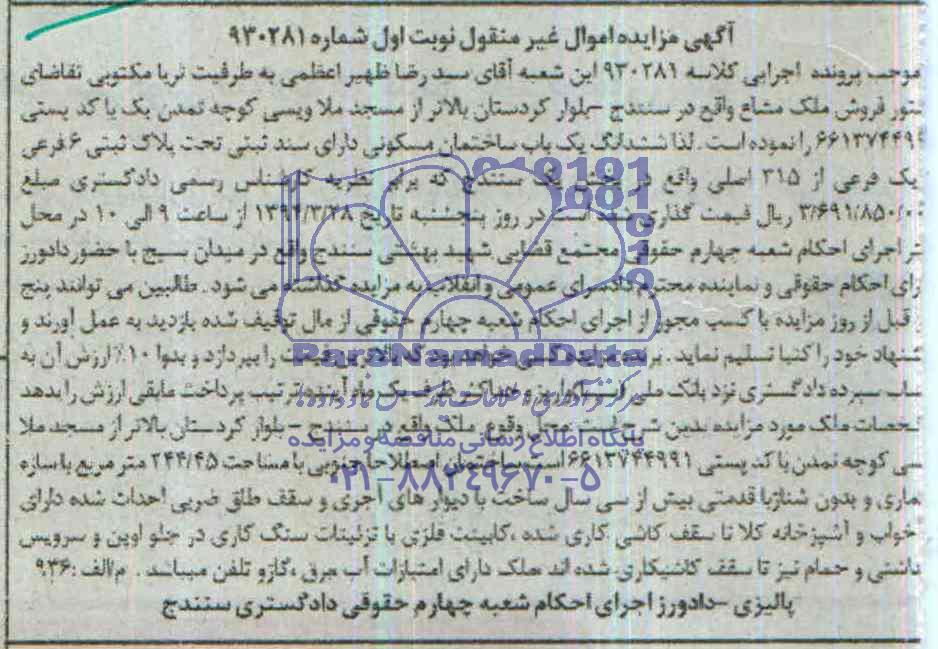 آگهی مزایده اموال غیر منقول نوبت اول شماره ۹۳۰۲۸۱
موجب پرونده اجرایی کلاسه ۹۳۰۲۸۱ این شعبه آقای سید رضا ظهیر اعظمی به طرفیت ثریا مکتوبی تقاضای
ستور فروش ملک مشاع واقع در سنندج -بلوار کردستان بالاتر از مسجد ملا ویسی کوچه تمدن یک با کد پستی
۶۶۱۳۷۴۴۹۹ را نموده است. لذا ششدانگ یک باب ساختمان مسکونی دارای سند ثبتی تحت پلاک ثبتی ۶ فرعی
یک فرعی از ۳۱۵ اصلی واقع در بخش یک سنندج که برابر نظریه کارشناس رسمی دادگستری مبلغ
۳/۶۹۱/۸۵۰/۰۰۰ ریال قیمت گذاری شده است در روز پنجشنبه تاریخ ۱۳۹۴/۳/۲۸ از ساعت ۹ الی ۱۰ در محل
تر اجرای احکام شعبه چهارم حقوقی مجتمع قضایی شهید بهشتی سنندج واقع در میدان بسیج با حضور دادورز
رای احکام حقوقی و نماینده محترم دادسرای عمومی و انقلاب به مزایده گذاشته می شود. طالبین می توانند پنج
قبل از روز مزایده با کسب مجوز از اجرای احکام شعبه چهارم حقوقی از مال توقیف شده بازدید به عمل آورند و
شنهاد خود را کتبا تسلیم نماید. برنده مزایده کسی خواهد بود که بالاترین قیمت را بپردازد و بدوا ۱۰٪ ارزش آن به
ساب سپرده دادگستری نزد بانک ملی واریز و حداکثر ظرف یک ماه ترتیب پرداخت مابقی ارزش را بدهد
شخصات ملک مورد مزایده بدین شرح است محل وقوع ملک واقع در سنندج -بلوار کردستان بالاتر از مسجد ملا
سی کوچه تمدن با کد پستی ۶۶۱۳۷۴۴۹۹۱ است ساختمان اصطلاحا جنوبی با مساحت ۲۴۴/۴۵ متر مربع با سازه
ماری و بدون شناژ با قدمتی بیش از سی سال ساخت با دیوار های آجری و سقف طاق ضربی احداث شده دارای
خواب و آشپزخانه کلا تا سقف کاشی کاری شده ،کابینت فلزی با تزئینات سنگ کاری در جلو اوپن و سرویس
داشتی و حمام نیز تا سقف کاشیکاری شده اند ملک دارای امتیازات آب ،برق ،گاز و تلفن میباشد . م/الف :۹۳۶
پالیزی -دادورز اجرای احکام شعبه چهارم حقوقی دادگستری سنندج
ParsNamadData
پایگاه اطلاع رسانی مناقصه و مزایده
۰۲۱-۸۸۳۴۹۶۷۰-۵